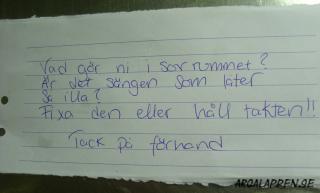 Vad gör ni i sovrummet?
Är det sängen som låter
så illa?
Fixa den eller håll takten!!
Tack på förhand
ARGALAPPEN.SE